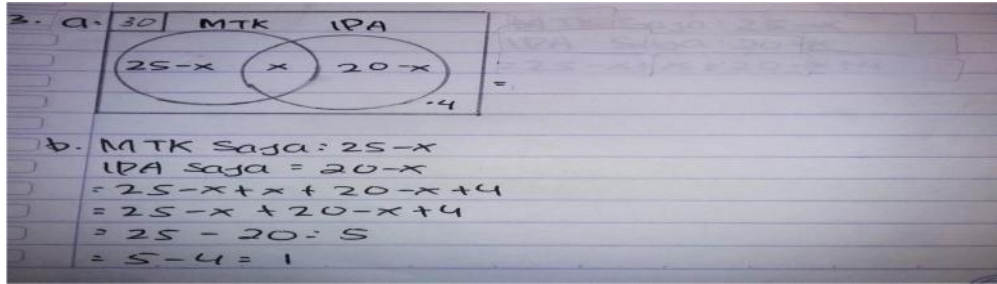 3. a. 30 MTK IPA
25-x x 20-x
.4
=
b. MTK saja = 25-x
IPA saja = 20-x
= 25-x+x+20-x+4
= 25-x+20-x+4
= 25-20=5
= 5-4=1